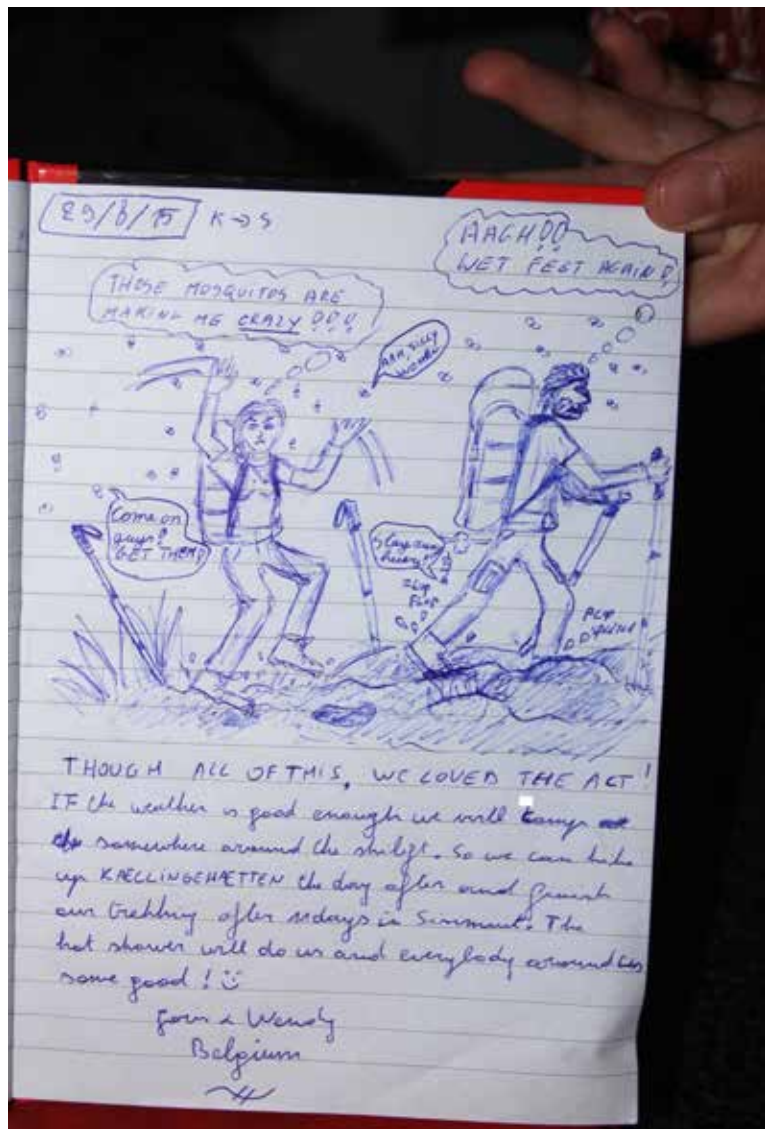 K → S
AAGH!!
WET FEET AGAIN!
THOSE MOSQUITOS ARE
MAKING ME CRAZY !!!
AAH, SILLY
Come on
guys!
GET THEM!
FLOP
THOUGH ALL OF THIS, WE LOVED THE ACT!
IF the weather is good enough we will camp
somewhere around the skilift. So we can hike
up KÆLLINGEHÆTTEN the day after and finish
our trekking after days in Sisimiut. The
hot shower will do us and everybody around us
some good! :)
& Wendy
Belgium